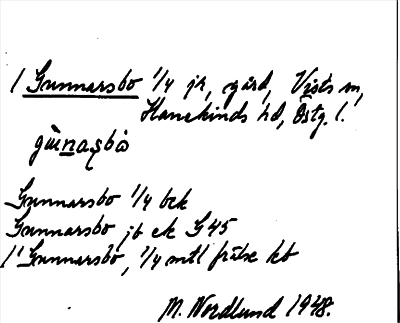 1 Gunnarsbo 1/4 jr, gård, Vists sn,
Hanekinds hd, Östg. l.
Gunnarsbo 1/4 bek
Gunnarsbo jb ek G45
1' Gunnarsbo, 1/4 mtl frälse kb
M. Nordlund 1948.